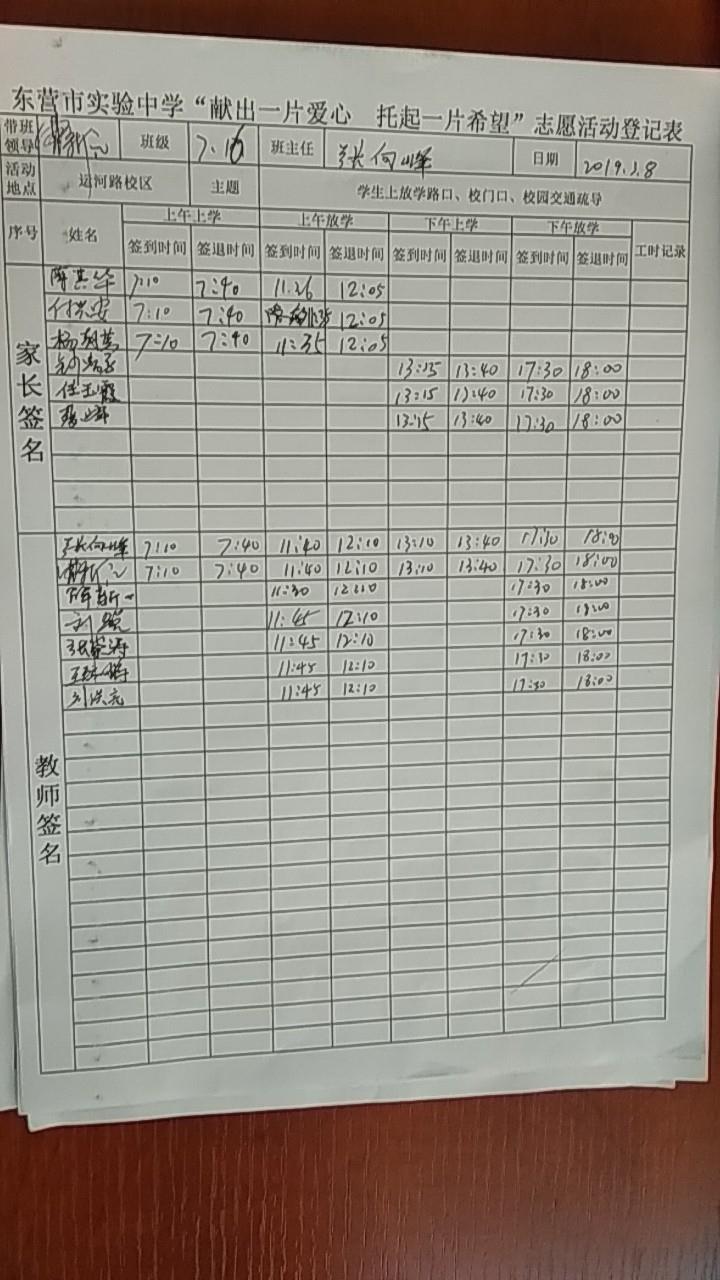 东营市实验中学“献出一片爱心 托起一片希望”志愿活动登记表
带班领导 班级 7.16 班主任 张向峰 日期 2019.3.8
活动地点 运河路校区 主题 学生上放学路口、校门口、校园交通疏导
序号 姓名 上午上学 上午放学 下午上学 下午放学 工时记录
签到时间 签退时间 签到时间 签退时间 签到时间 签退时间 签到时间 签退时间
家长签名
7:10 7:40 11:26 12:05
7:10 7:40 12:05
7:10 7:40 11:35 12:05
13:15 13:40 17:30 18:00
任玉霞 13:15 13:40 17:30 18:00
13:15 13:40 17:30 18:00
教师签名
张向峰 7:10 7:40 11:40 12:10 13:10 13:40 17:30 18:00
7:10 7:40 11:40 12:10 13:10 13:40 17:30 18:00
11:30 12:10 17:30 18:00
11:45 12:10 17:30 18:00
11:45 12:10 17:30 18:00
11:45 12:10 17:30 18:00
刘洪亮 11:45 12:10 17:30 18:00